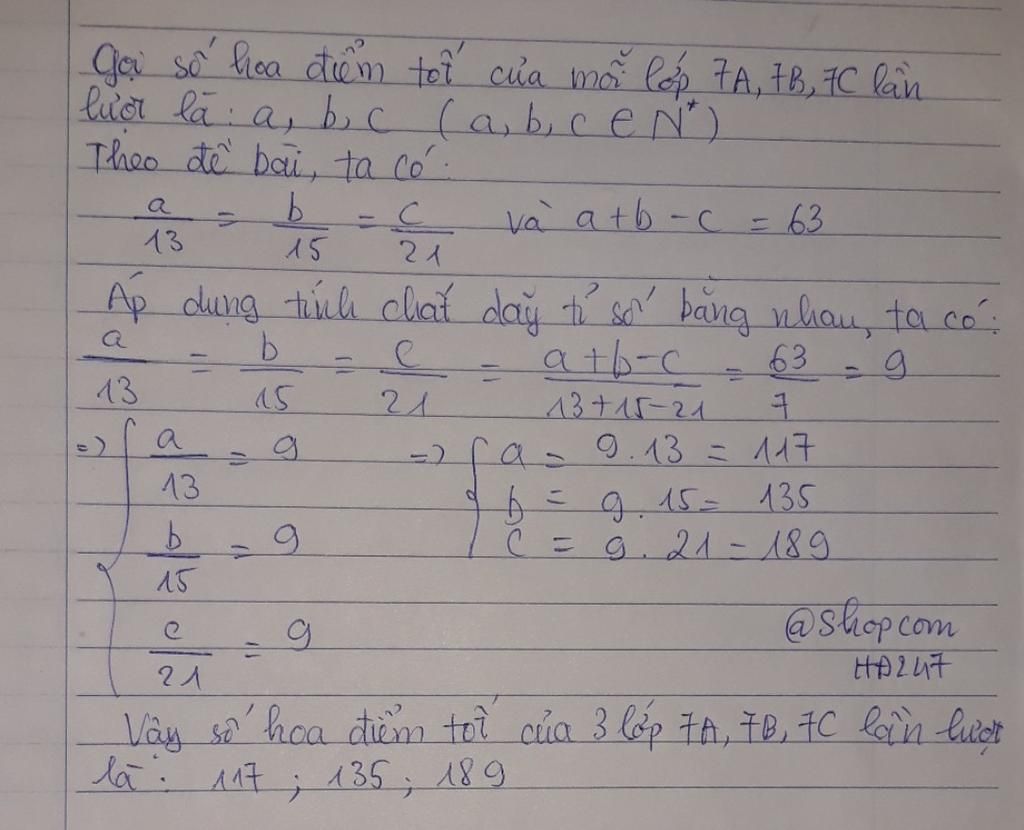 Gọi số hoa điểm tốt của mỗi lớp 7A, 7B, 7C lần
lượt là: a, b, c (a, b, c ∈ N*)
Theo đề bài, ta có:
a/13 = b/15 = c/21 và a+b-c = 63
Áp dụng tính chất dãy tỉ số bằng nhau, ta có:
a/13 = b/15 = c/21 = a+b-c/13+15-21 = 63/7 = 9
=> { a/13 = 9 => { a = 9.13 = 117
b = 9.15 = 135
b/15 = 9 c = 9.21 = 189
c/21 = 9
@shopcom
HĐ247
Vậy số hoa điểm tốt của 3 lớp 7A, 7B, 7C lần lượt
là: 117 ; 135 ; 189